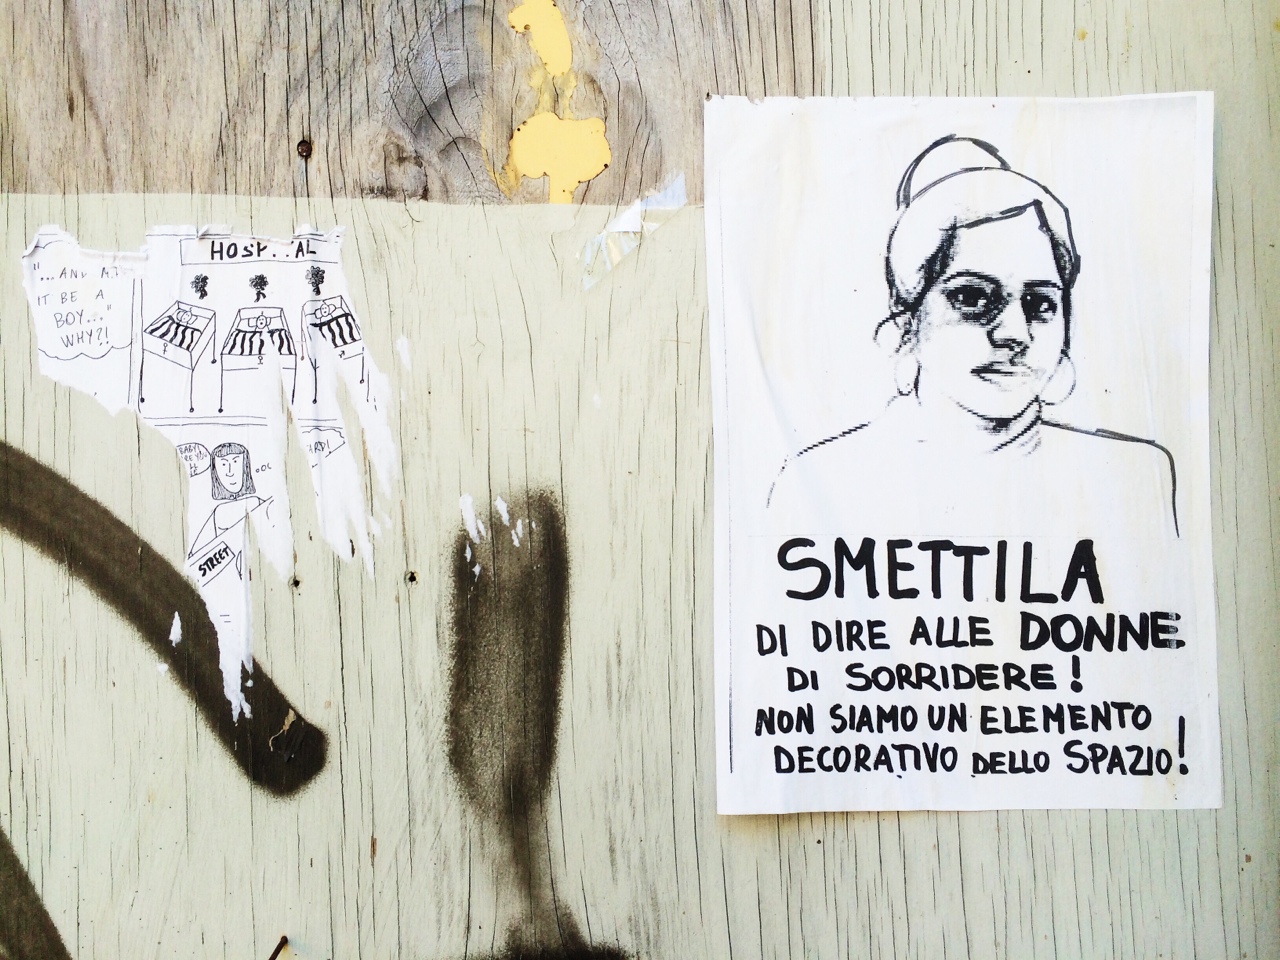 HOSP..AL
"...AND MI
IT BE A
BOY..."
WHY?!
BABY!
STREET
SMETTILA
DI DIRE ALLE DONNE
DI SORRIDERE!
NON SIAMO UN ELEMENTO
DECORATIVO DELLO SPAZIO!